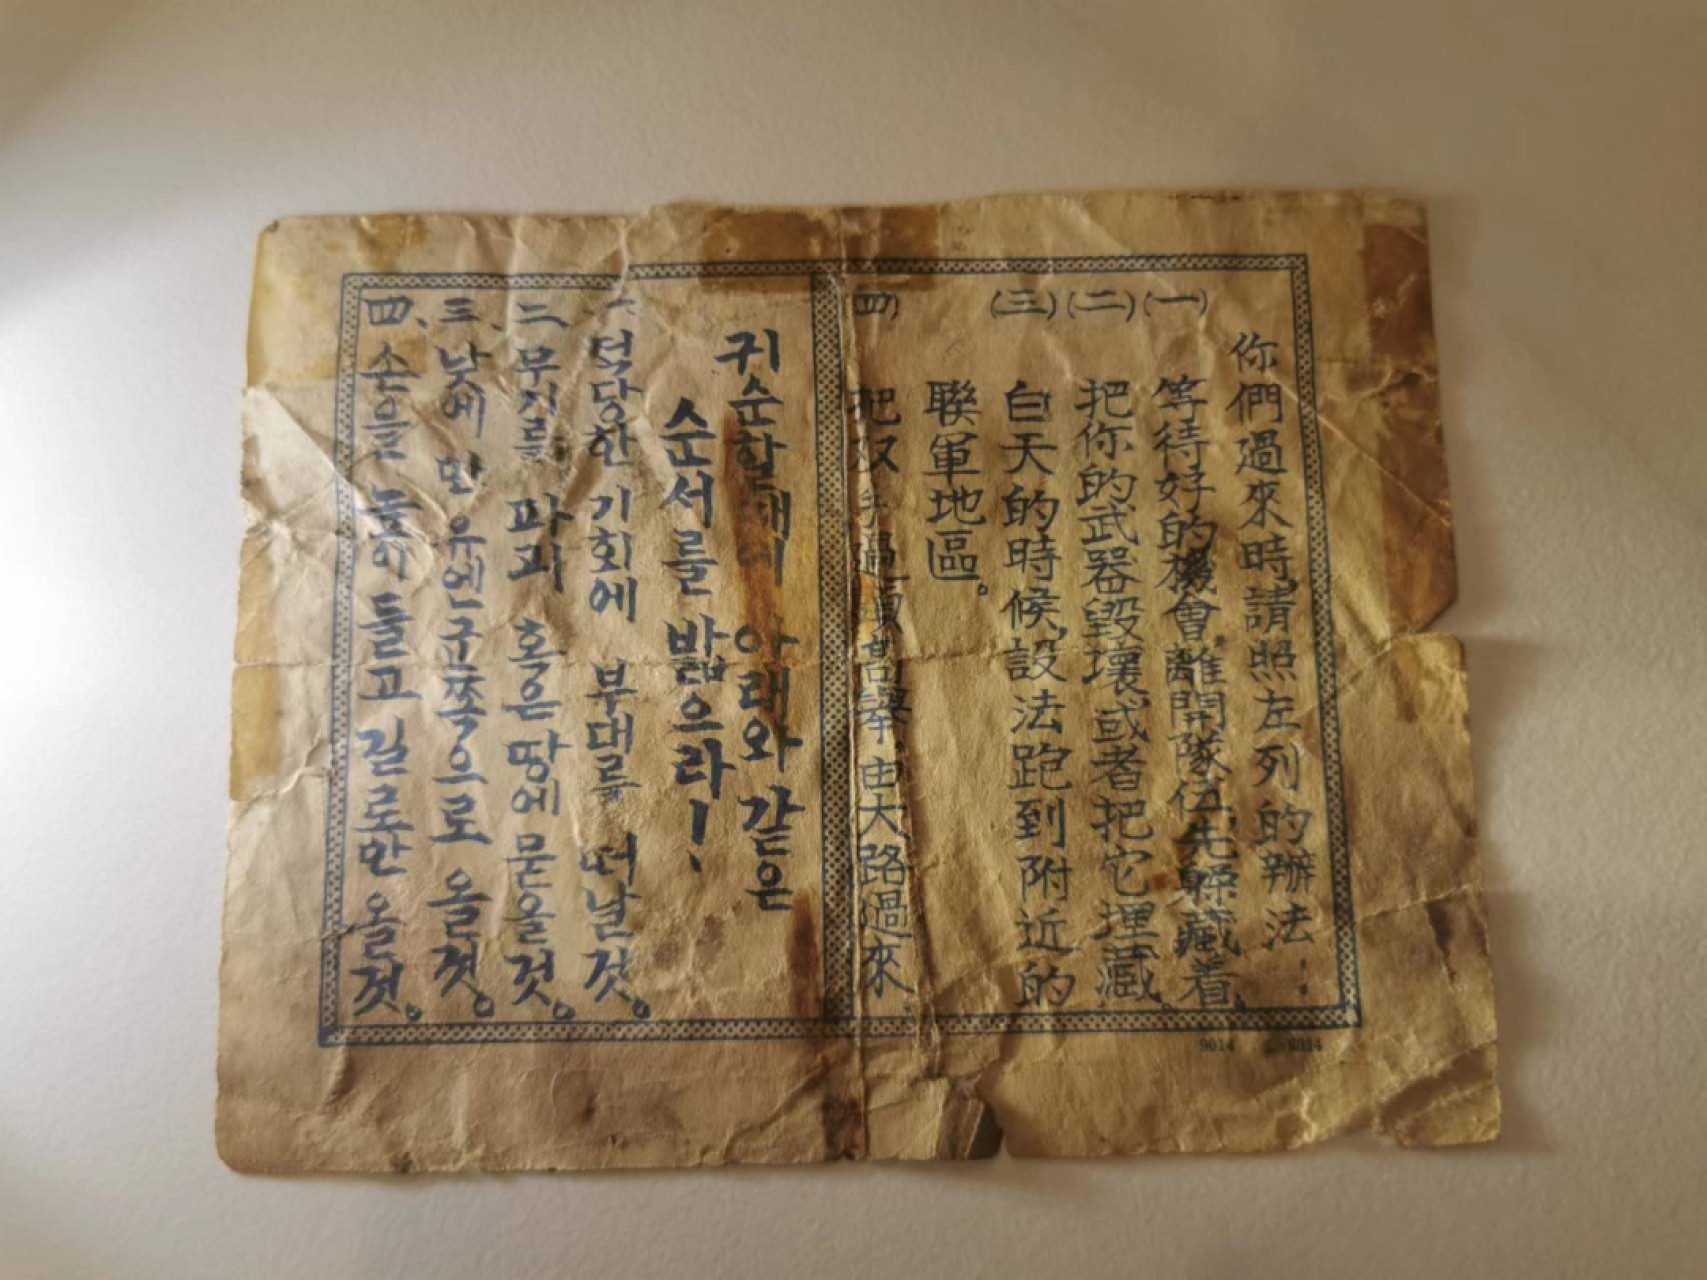 你們過來時,請照左列的辦法:
(一) 等待好的機會,離開隊伍,先躱藏着。
(二) 把你的武器毀壞,或者把它埋藏。
(三) 白天的時候,設法跑到附近的
聯軍地區。
(四) 把双手過頭高舉,由大路過來.
귀순할때에 아래와 같은
순서를 밟으라!
一、덕당한 기회에 부대를 떠날것。
二、무기를 파괴 혹은 땅에 묻을것。
三、낮에만 유엔군쪽으로 올것。
四、손을 높이 들고 길로만 올것。
9014 8014